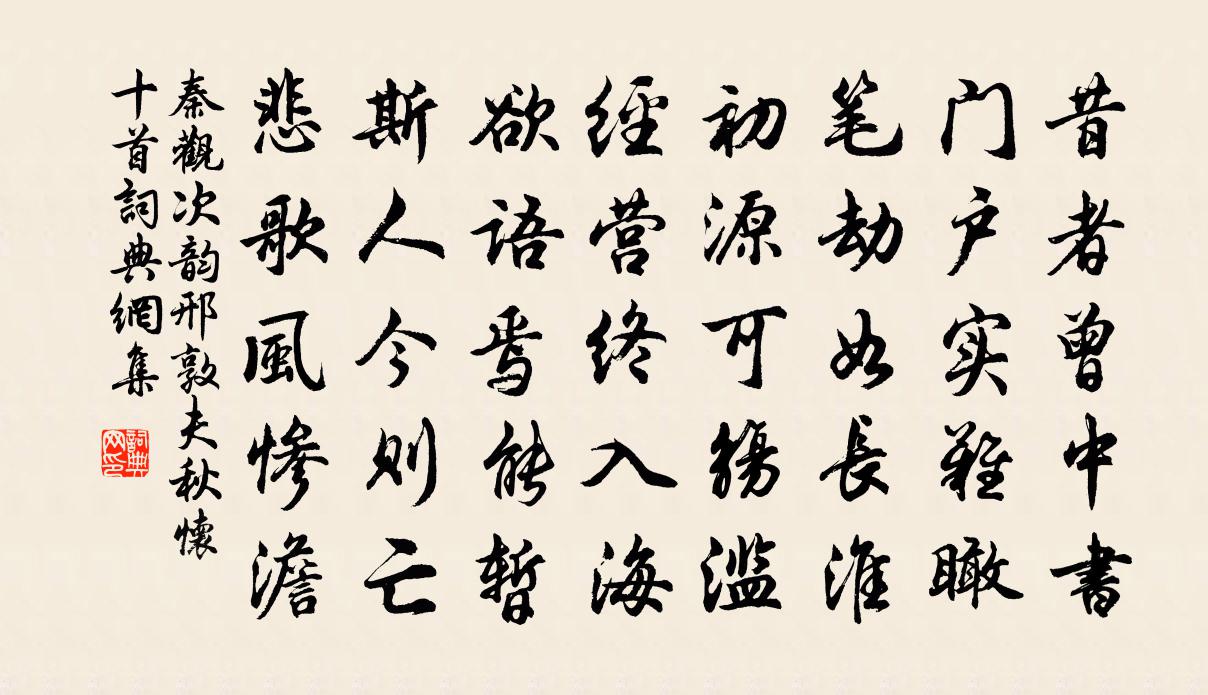 昔者曾中書
门户实難瞰
笔劫如長淮
初源可觴滥
經营终入海
欲语焉能暫
斯人今则亡
悲歌風惨澹
秦觀次韵邢敦夫秋懷
十首詞典網集
詞典网印